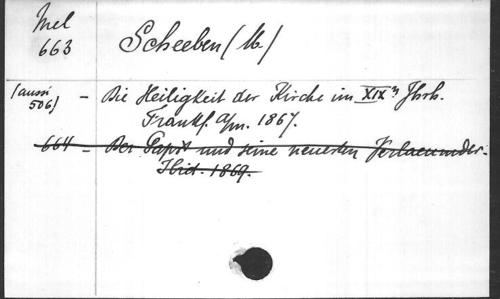 Mel
663
Scheeben (M.)
(aussi
506)
- Die Heiligkeit der Kirche im XIXn Jhrh.
Frankf. a/m. 1867.
664 - Der Papst und seine neuesten Verlaeumder.
Ibid. 1869.